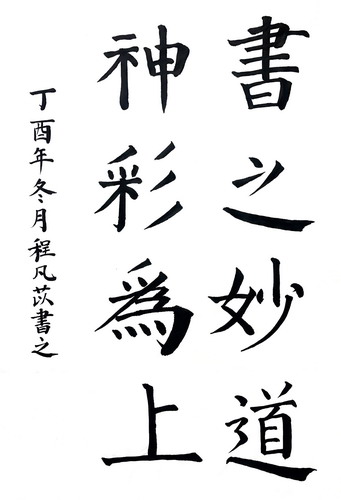 書之妙道
神彩爲上
丁酉年冬月程凡苡書之